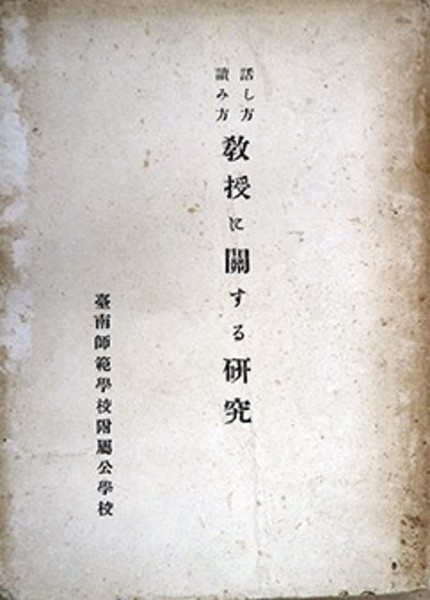 話し方
讀み方
敎授に關する研究
臺南師範學校附屬公學校